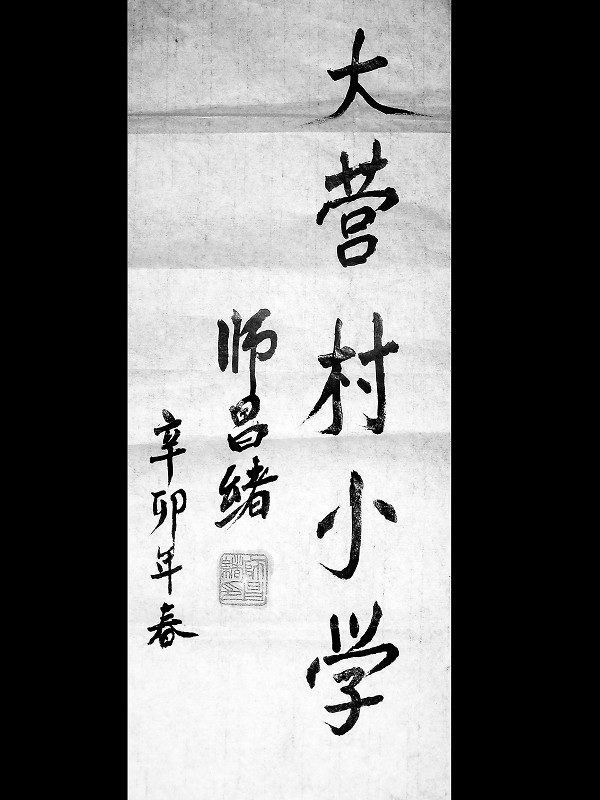 大营村小学
师昌绪
辛卯年春